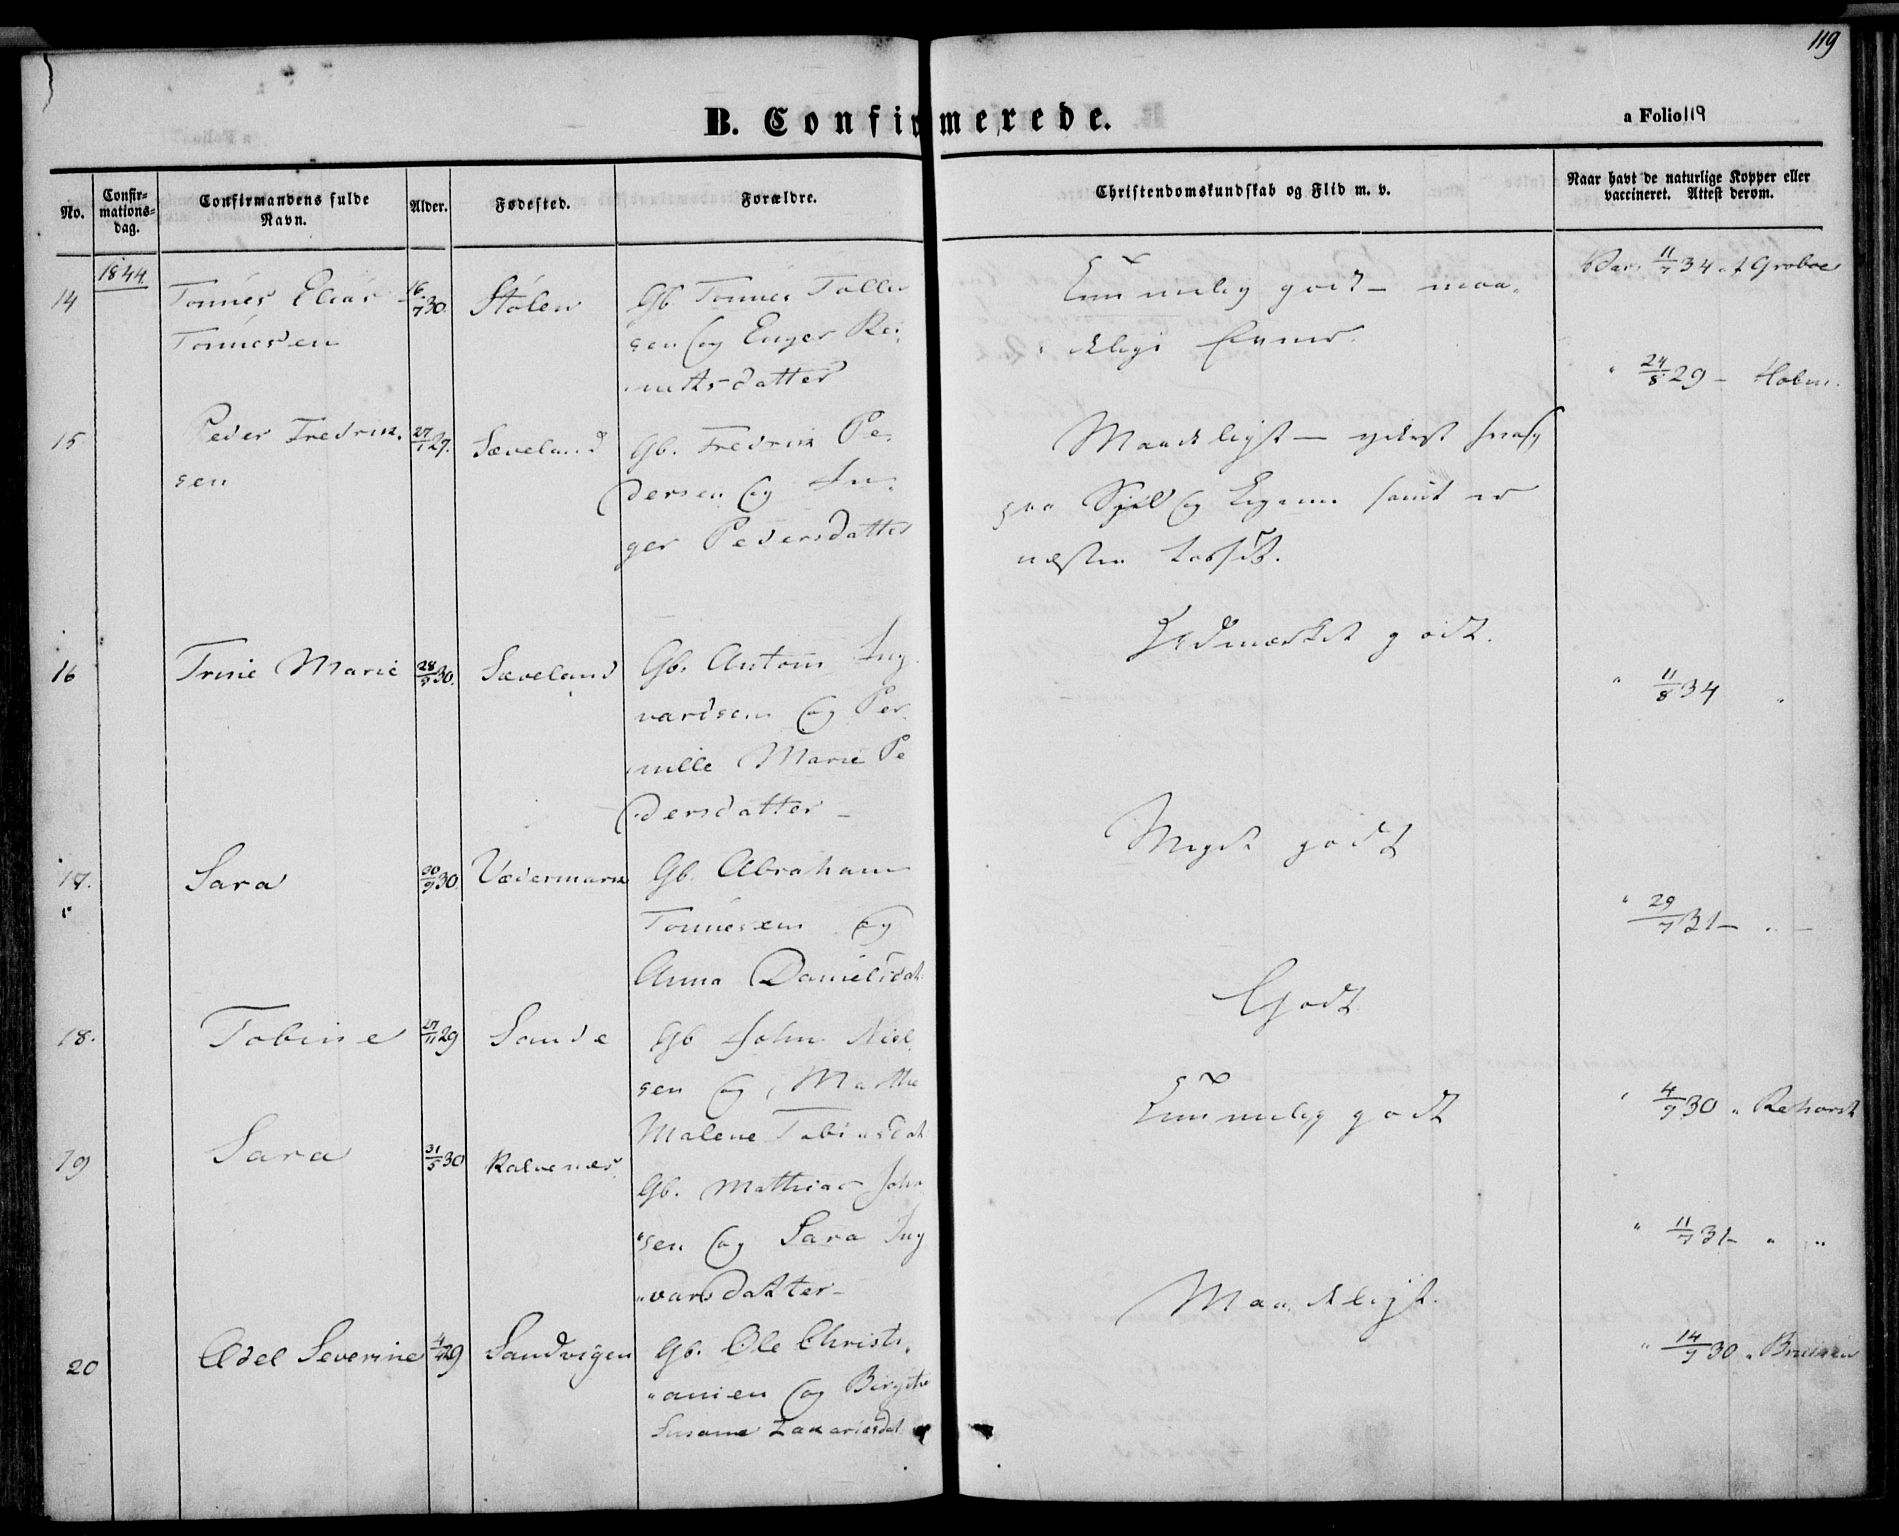 119
B. Confirmerede.
a Folio 119
No.
Confir-
mations-
dag.
Confirmandens fulde
Navn.
Alder.
Fødested.
Forældre.
Christendomskundskab og Flid m. v.
Naar havt de naturlige Kopper eller
vaccineret. Attest derom.
1844
14 Tønnes Elias 16/7 30. Stølen Gb Tønnes Tolle
Tønnesen
sen og Enger Re
datter
Temmelig godt - maa
delige Evner.
Vac. 11/7 34 af Grobve
15 Peder Fredrik 27/1 29. Sæveland Gb. Fredrik Pe
sen
dersen og In
ger Pedersdatter
Maadeligt - yderst svag
paa Sjel og Legeme samt er
næsten
" 24/8 29 - Holm
16 Trine Marie 28/9 30. Sæveland Gb. Anton Ing
vardsen og Per
nille Marie Pe
dersdatter -
Udmærket godt.
" 11/8 34 "
17. Sara 30/9 30. Vedermark Gb. Abraham
Tønnesen og
Anna Danielsdat
Meget godt
" 29/7 31 - " -
18. Tobine 27/11 29 Sande Gb John Niel
sen og Marthe
Malene Tobiasdat
Godt
" 4/7 30 "
19 Sara 31/5 30 Kalvenes Gb. Mathias John
sen og Sara Ing
varsdatter -
Temmelig godt
" 11/7 31 - " "
20 Adel Severine 29 Sandvigen Gb. Ole Christi
ansen og Birgite
Susanne Zakariasdat
Maadeligt.
" 14/7 30 "